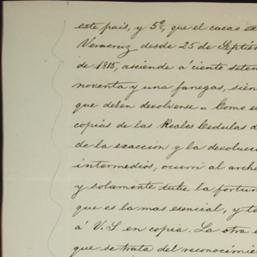 este país, y 5º, que el cacao
Veracruz desde 25 de Septie
de 1815, asciende á ciento seten
noventa y una fanegas, sien
que deben devolverse. Como
copias de las Reales Cedulas d
de la exaccion y la devoluci
intermedios, ocurrí al arch
y solamente tube la fortun
que es la mas esencial, y t
á V. S. en copia. La otra
que se trata del reconocimie